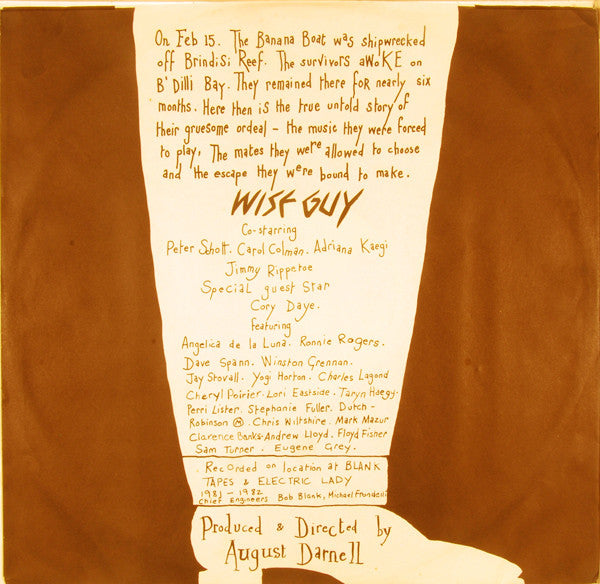 On Feb 15. The Banana Boat was shipwrecked
off BrindiSi Reef. The survivors aWoKE on
B'Dilli Bay. They remained there foR nearly six
months. Here then is the true untold story of
their gruesome ordeal - the music they were forced
to play, The mates they were allowed to choose
and the escape they were bound to make.
WISE GUY
Co-starring
Peter Schott. Carol Colman. Adriana Kaegi
Jimmy Rippetoe
Special guest Star
Cory Daye.
featuring
Angelica de la Luna. Ronnie Rogers.
Dave Spann. Winston Grennan.
Jay Stovall. Yogi Horton. Charles Lagond
Cheryl Poirier. Lori Eastside. Taryn Haegy.
Perri Lister. Stephanie Fuller. Dutch-
Robinson Ⓜ. Chris Wiltshire. Mark Mazur
Clarence Banks. Andrew Lloyd. Floyd Fisher
Sam Turner. Eugene Grey.
. Recorded on location at BLANK
TAPES & ELECTRIC LADY
1981 - 1982
Chief Engineers Bob Blank, Michael Frondelli
Produced & Directed by
August Darnell